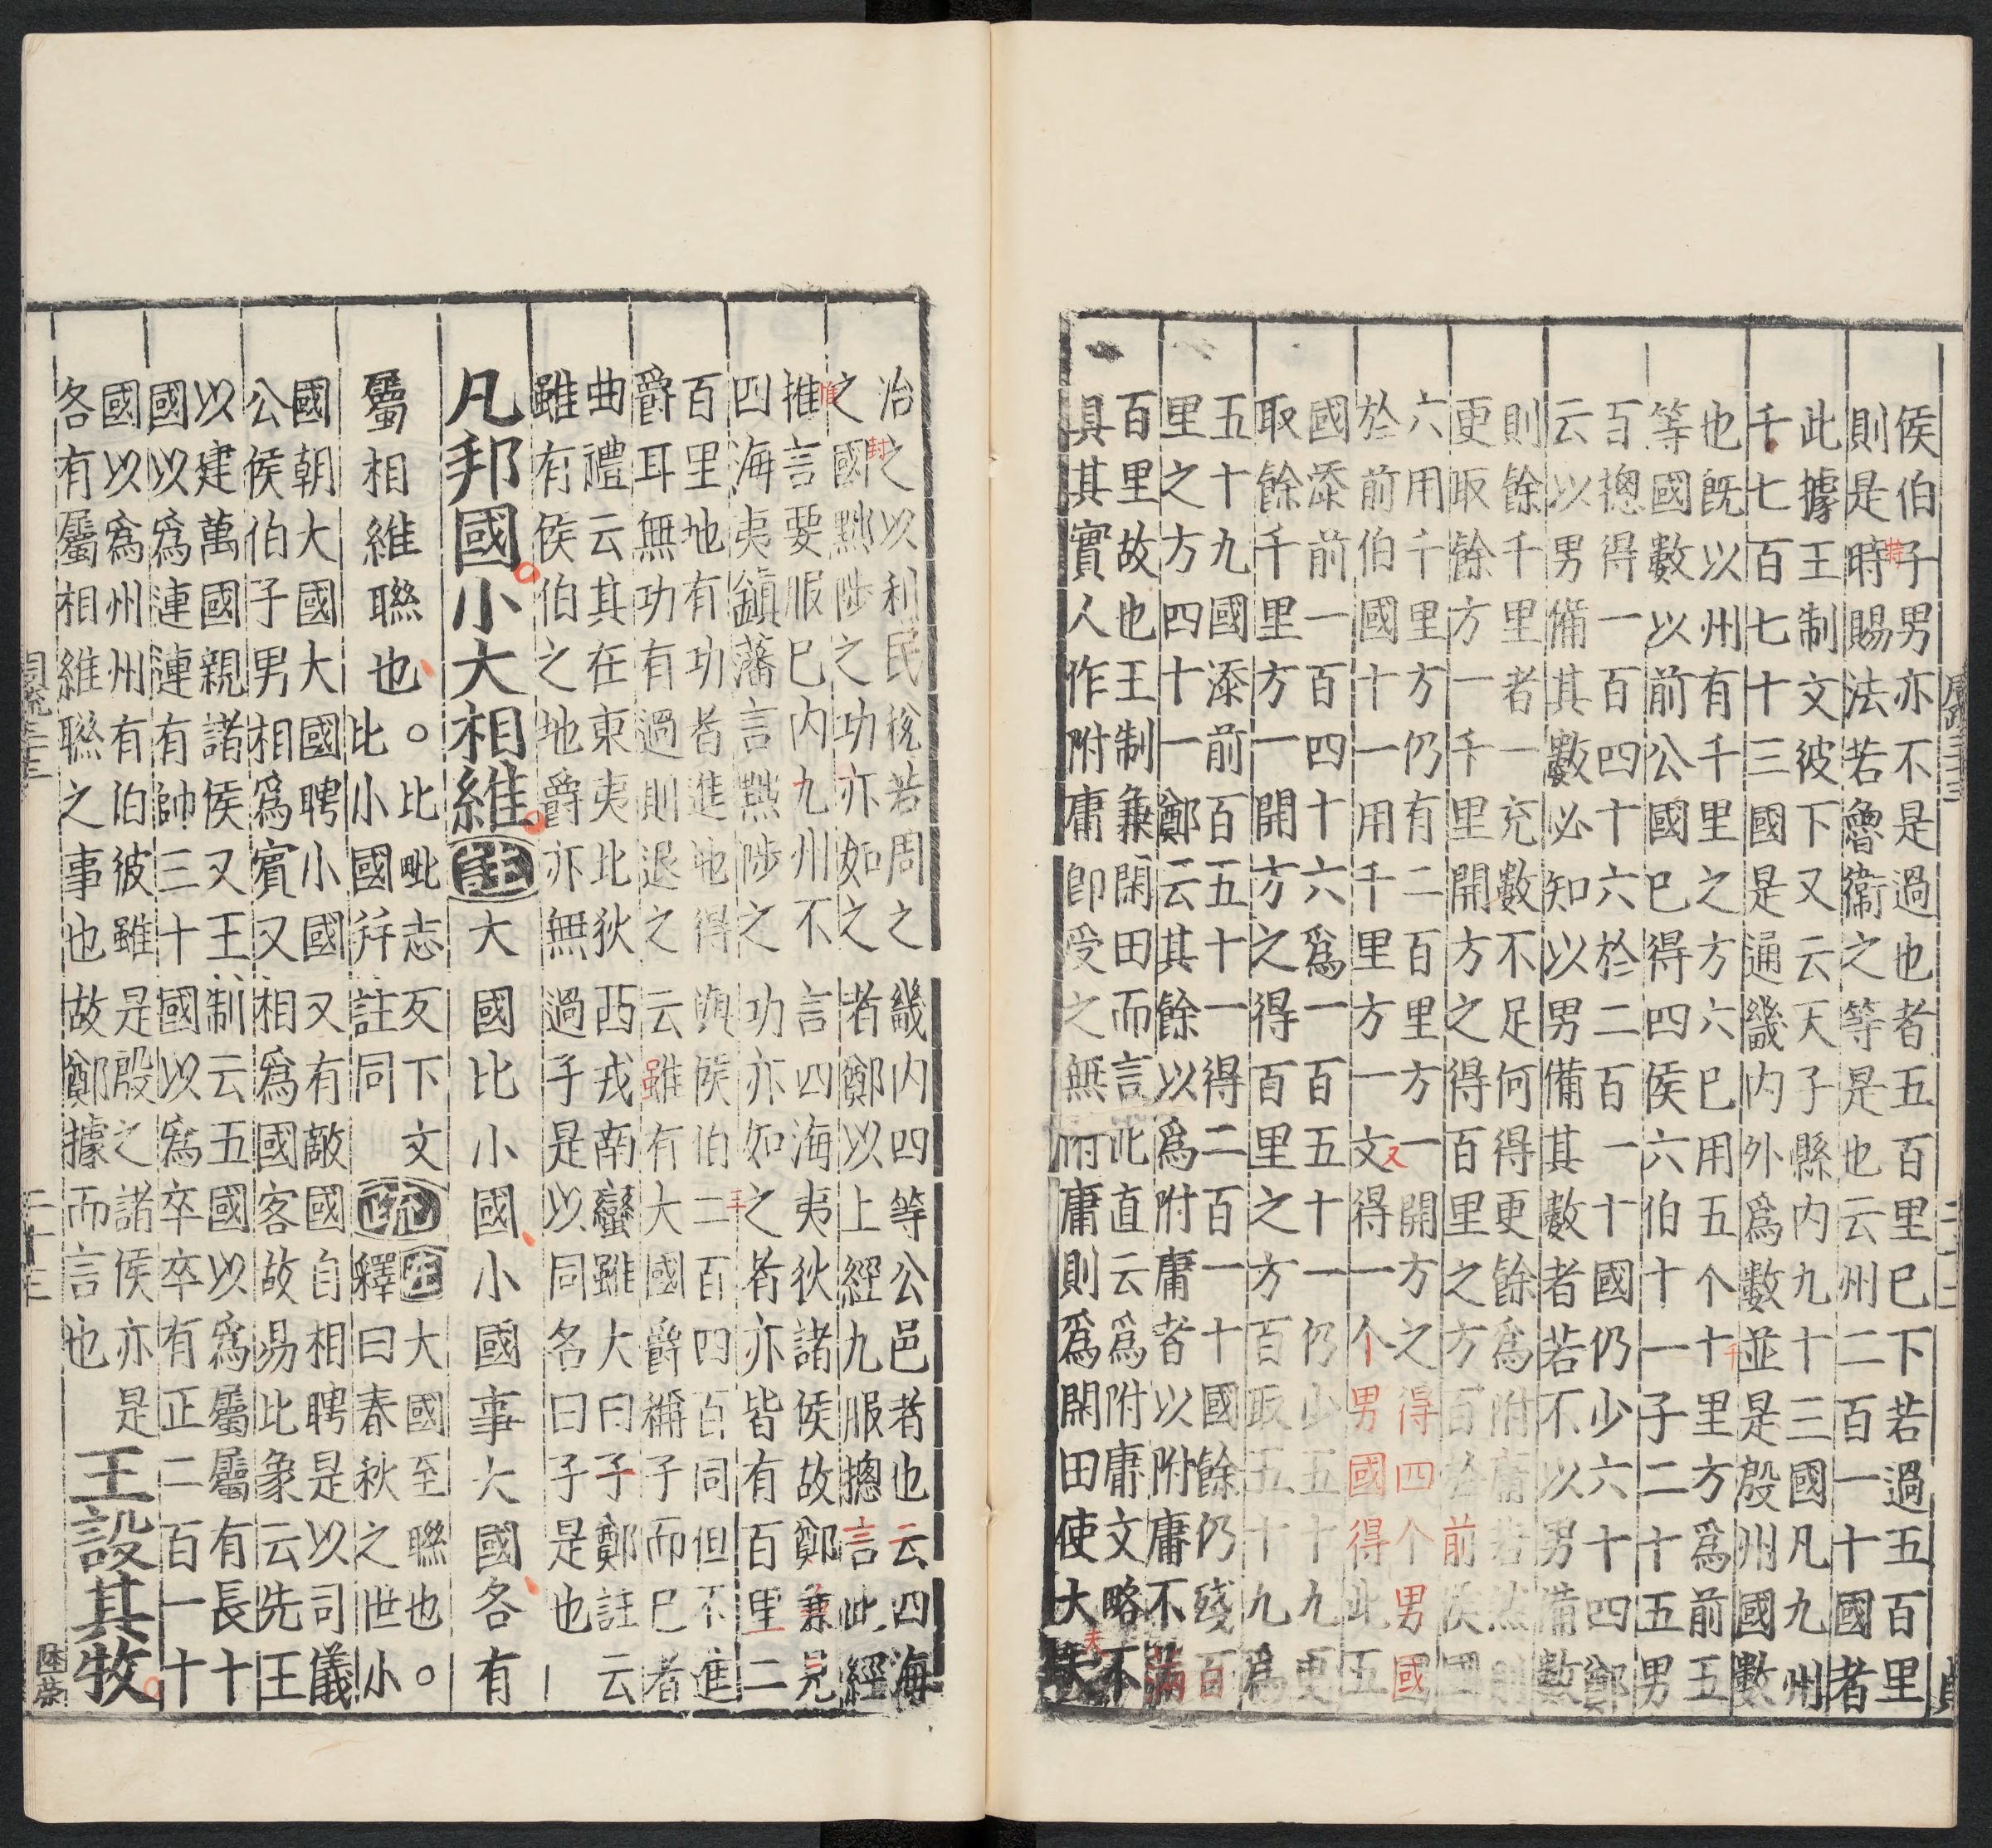 侯伯子男亦不是過也者五百里已下若過五百里
則是時賜法若魯衛之等是也云州二百一十國者
此據王制文彼下又云天子縣内九十三國凡九州
千七百七十三國是通畿内外爲數並是殷州國數
也旣以州有千里之方六已用五个十里方爲前五
等國數以前公國已得四侯六伯十一子二十五男
百揔得一百四十六於二百一十國仍少六十四鄭
云以男備其數必知以男備其數者若不以男備數
則餘千里者一充數不足何得更餘爲附庸若然則
更取餘方一千里開方之得百里之方百於前侯國
六用千里方仍有二百里方一開方之得四个男國
於前伯國十一用千里方一文得一个男國得此五
國添前一百四十六爲一百五十一仍少五十九更
取餘千里方一開方之得百里之方百取五十九爲
五十九國添前百五十一得二百一十國餘仍殘百
里之方四十一鄭云其餘以爲附庸者以附庸不滿
百里故也王制兼閑田而言此直云爲附庸文略不
具其實人作附庸即受之無附庸則爲閑田使大夫
治之以利民稅若周之畿内四等公邑者也云四海
之國黜陟之功亦如之者鄭以上經九服揔言此經
推言要服已内九州不言四海夷狄諸侯故鄭兼見
四海夷鎮藩言黜陟之功亦如之者亦皆有百里二
百里地有功者進地得與侯伯二百四百同但不進
爵耳無功有過則退之云雖有大國爵稱子而已者
曲禮云其在東夷北狄西戎南蠻雖大曰子鄭註云
雖有侯伯之地爵亦無過子是以同名曰子是也
凡邦國小大相維註大國比小國小國事大國各有
屬相維聯也。比毗志反下文
比小國幷註同疏正大國至聯也。
釋曰春秋之世小
國朝大國大國聘小國又有敵國自相聘是以司儀
公侯伯子男相爲賓又相爲國客故易比象云先王
以建萬國親諸侯又王制云五國以爲屬屬有長十
國以爲連連有帥三十國以爲卒卒有正二百一十
國以爲州州有伯彼雖是殷之諸侯亦是
各有屬相維聯之事也故鄭據而言也
王設其牧